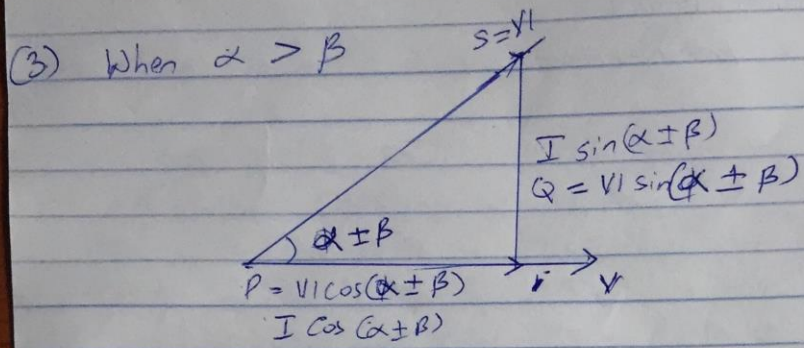 (3) When α > β
S = VI
I sin(α ± β)
Q = VI sin(α ± β)
α ± β
P = VI cos(α ± β)
V
I cos (α ± β)